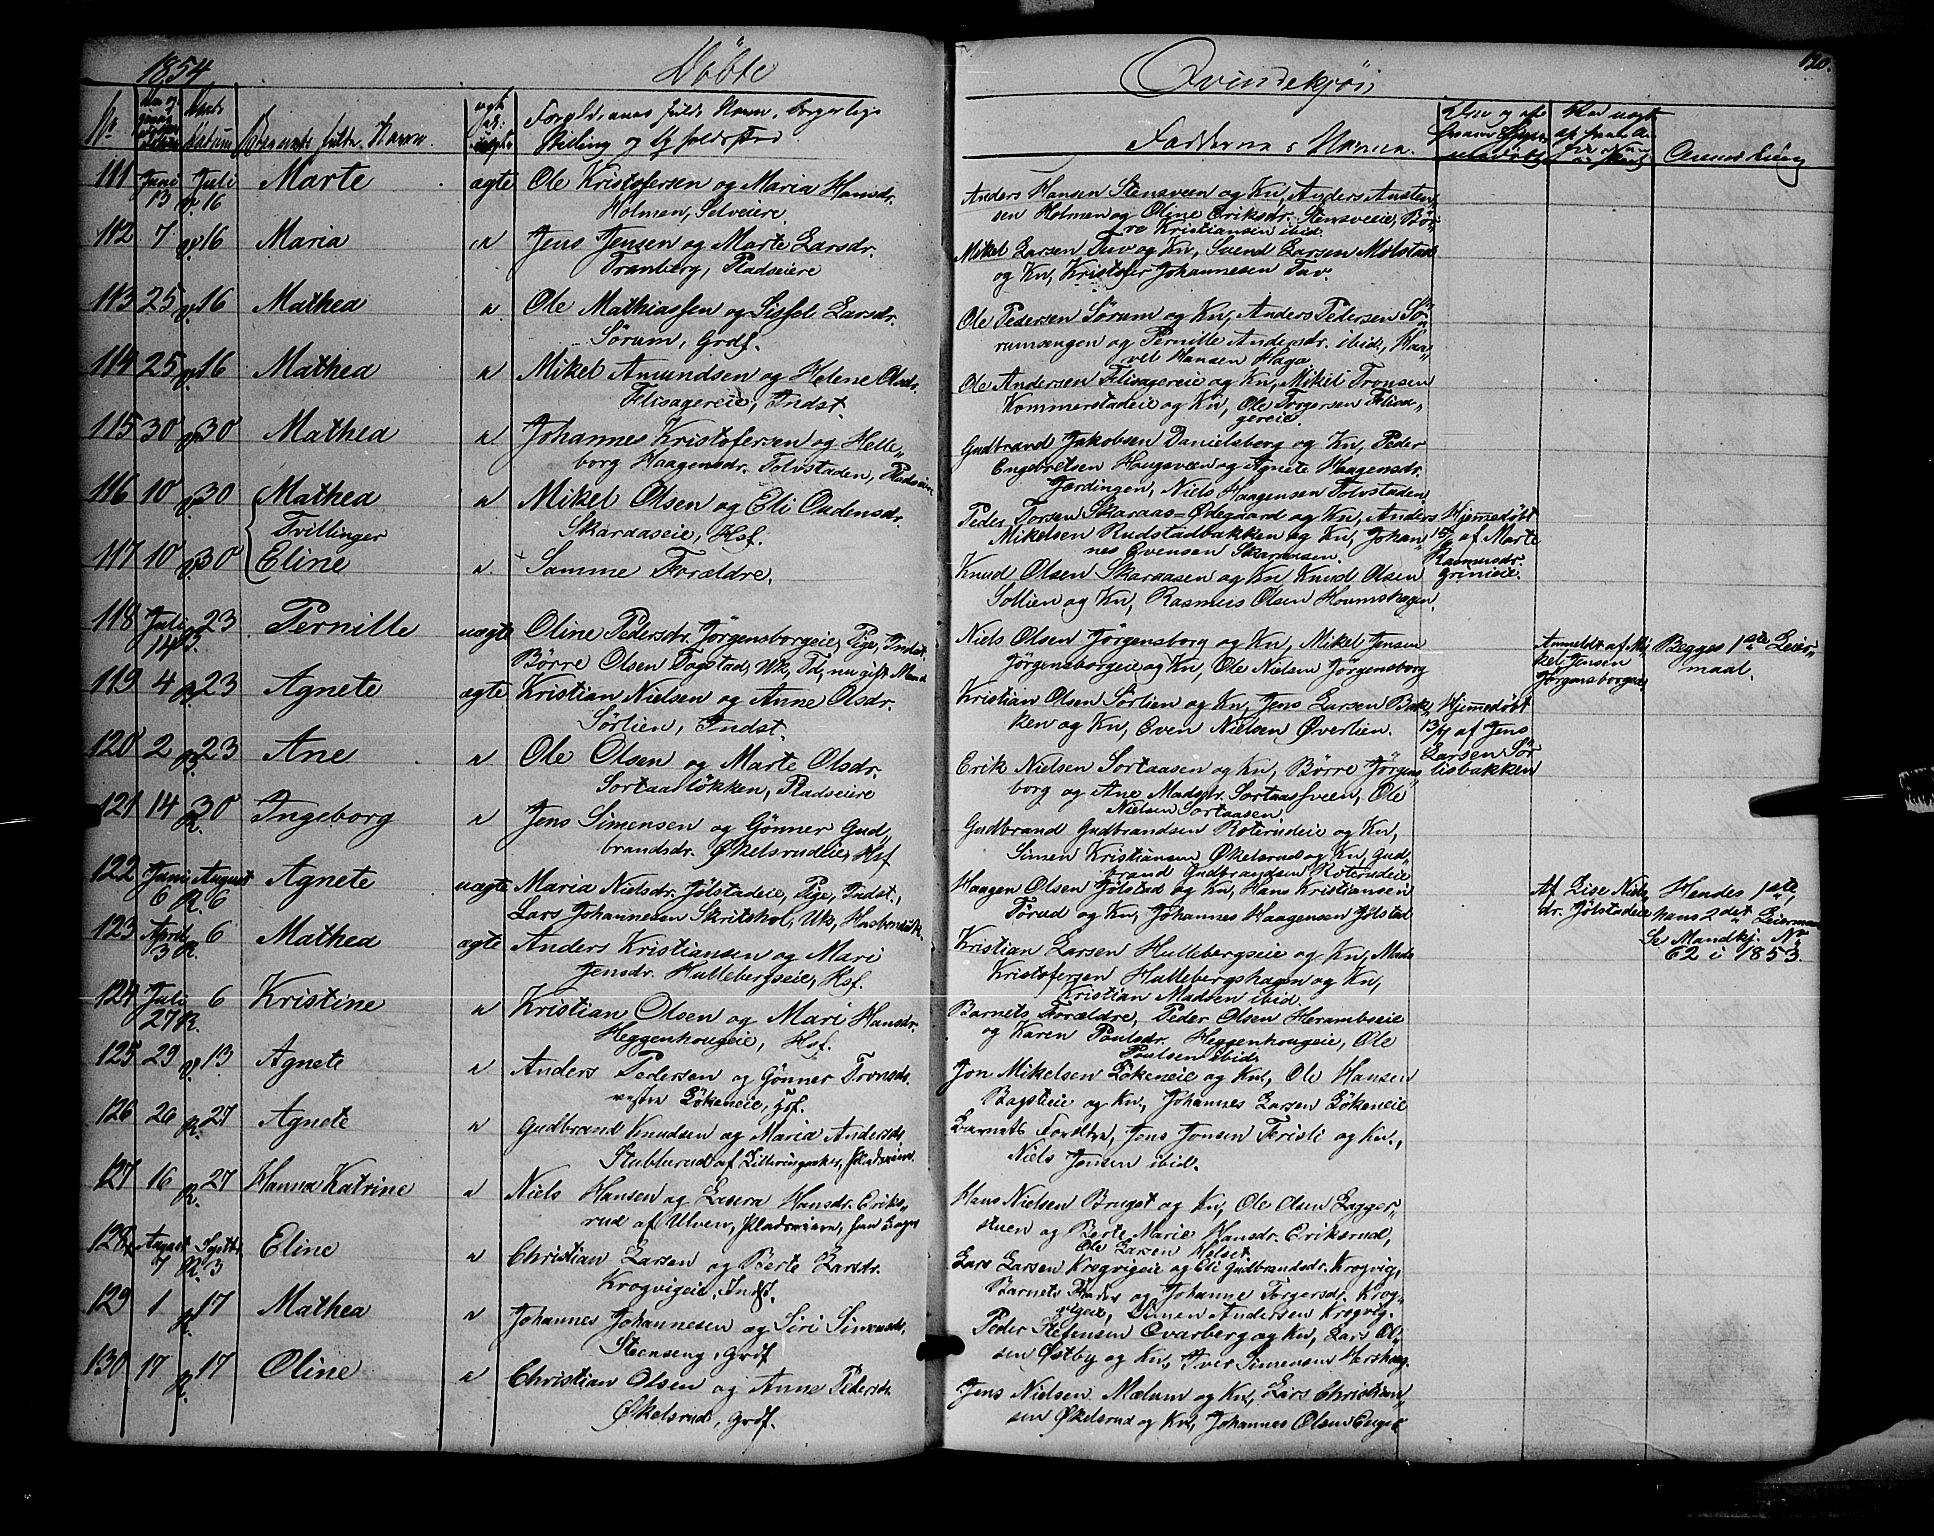 1854 Døbte
Qvindekjøn 120.
No Datum Barnets fulde Navn. ægte Forældrenes fulde Navn, borgerlige
Stilling og Opholdssted
Faddernes Navne. Anmærkning
111 Juni 13 Juli 16 Marte ægte Ole Kristofersen og Maria Hansdr.
Holmen, Selveiere.
Anders Hansen Stensveen og Kn, Anders Austen„
sen Holmen og Oline Eriksdr. Stensveeie, Bør„
re Kristiansen ibid.
112 7 16 Maria Jens Jensen og Marte Larsdr.
Tranberg, Pladseiere
Mikel Larsen Tuv og Kn, Svend Larsen Molstad
og Kn, Kristofer Johannesen Tuv.
113 25 16 Mathea Ole Mathiassen og Sissel Larsdr.
Sørum, Grdf.
Ole Pedersen Sørum og Kn, Anders Pedersen Sø„
rumsengen og Pernille Andersdr. ibid, Haa„
vel Hansen Haga
114 25 16 Mathea Mikel Amundsen og Helene Olsdr.
Flisagereie, Indst.
Ole Andersen Flisagereie og Kn, Mikel Tronsen
Kommerstadeie og Kn, Ole Torgersen Flisa„
gereie.
115 30 30 Mathea Johannes Kristofersen og Helle„
borg Haagensdr. Tolvstaden, Pladseiere
Gudbrand Jakobsen Danielsborg og Kn, Peder
Engebretsen Hougsveen og Agnete Haagensdr.
Jordingen, Niels Haagensen Tolvstaden
116 10 30 Mathea Mikel Olsen og Eli Oudensdr.
Tvillinger Skaraaseie, Hsf.
Peder Torsen Skaraas=Ødegaard og Kn, Anders
Mikelsen Rudstadbakken og Kn, Johan„
nes Evensen Skaraasen.
Hjemmedøbt
15/6 af Marte
Rasmusdr.
Grinieie.
117 10 30 Eline Samme Forældre.
Knud Olsen Skaraasen og Kn Knud Olsen
Sollien og Kn, Rasmus Olsen Houmshagen.
118 Juli 14 23 Pernille uægte Oline Pedersdr. Jørgensborgeie, Pige, Indst.
Børre Olsen Togstad, Uk, Td, nu gift Mand
Niels Olsen Jørgensborg og Kn, Mikel Jensen
Jørgensborgeie og Kn, Ole Nielsen Jørgensborg
Anmeldt af Mi„
kel Jensen
Jørgensborgeie
Begges 1ste Leier„
maal.
119 4 23 Agnete ægte Kristian Nielsen og Anne Olsdr.
Sørlien, Indst.
Kristian Olsen Sørlien og Kn, Jens Larsen Bak„
ken og Kn, Even Nielsen Øverlien.
Hjemmedøbt
13/7 af Jens
Larsen Sør„
lisbakken
120 2 23 Ane Ole Olsen og Marte Olsdr.
Sortaasløkken, Pladseiere
Erik Nielsen Sortaasen og Kn, Børre Jørgens„
borg og Ane Madsdr. Sortaassveen, Ole
Nielsen Sortaasen.
121 14 30 Ingeborg Jens Simensen og Gønner Gud„
brandsdr. Økelsrudeie, Hsf
Gudbrand Gudbrandsen Roterudeie og Kn,
Simen Kristiansen Økelsrud og Kn, Gud„
brand Gudbrandsen Roterudeie
122 Juni 6 August 6 Agnete uægte Maria Nielsdr. Jølstadeie, Pige, Indst.,
Lars Johannesen Skritshol, Uk,
Haagen Olsen Jølstad og Kn, Hans Kristiansen
Torud og Kn, Johannes Haagensen Jølstad
Af Lise Niels„
dr. Jølstadeie
Hendes 1ste,
hans 2det Leiermaal
Se Mandkj. No
62 i 1853.
123 April 3 6 Mathea ægte Anders Kristiansen og Mari
Jensdr. Hullebergseie, Hsf.
Kristian Larsen Hullebergseie og Kn, Mads
Kristofersen Hullebergshagen og Kn,
Kristian Madsen ibid.
124 Juli 27 6 Kristine Kristian Olsen og Mari Hansdr.
Heggenhougeie, Hsf.
Barnets Forældre, Peder Olsen Herambseie
og Karen Poulsdr. Heggenhougeie, Ole
Poulsen ibid.
125 29 13 Agnete Anders Pedersen og Gønner Tronsdr.
vestre Løkeneie, Hsf.
Jon Mikelsen Løkeneie og Kn, Ole Hansen
Bagsteie og Kn, Johannes Larsen Løkeneie
126 26 27 Agnete Gudbrand Knudsen og Maria Andersdr.
Stubberud af pladseiere
Barnets Forældre, Jens Jonsen Feristi og Kn.,
Niels Jensen ibid.
127 16 27 Hanna Katrine Niels Hansen og Laura Hansdr. Eriks„
rud af Ulven, pladseiere,
Hans Nielsen Bruget og Kn, Ole Olsen Lagger„
stuen og Berte Marie Hansdr. Eriksrud,
Ole Larsen Helset
128 August 7 Septbr. 3 Eline Christian Larsen og Berte Larsdr.
Krogvigeie, Indst.
Lars Larsen Krogvigeie og Eli Gudbrandsdr. Krogvig,
Barnets Fader og Johanne Torgersdr. Krog„
vigeie, Simen Andersen Krogvig.
129 1 17 Mathea Johannes Johannesen og Siri Simensdr,
Stenseng, Grdf
Peder Steffensen Ovarberg og Kn, Lars Ol„
sen Østby og Kn, Iver Simensen Hershoug.
130 17 17 Oline Christian Olsen og Anne Pedersdr.
Økelsrud, Grdf.
Jens Nielsen Mælum og Kn, Lars Christian„
sen Økelsrud og Kn, Johannes Olsen Engeie